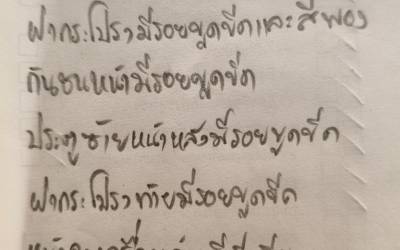 ฝากระโปรงมีรอยขูดขีดและสีพอง
กันชนหน้ามีรอยขูดขีด
ประตูซ้ายหน้าหลังมีรอยขูดขีด
ฝากระโปรงท้ายมีรอยขูดขีด